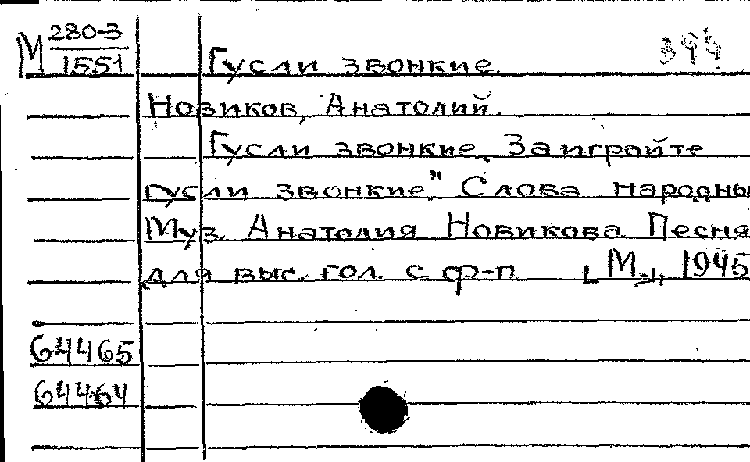 М 280-3 394
1551 Гусли звонкие.
Новиков, Анатолий.
Гусли звонкие. Заиграйте
гусли звонкие." Слова народны
Муз. Анатолия Новикова. Песня
для выс. гол. с ф-п [М.], 1945
64465
64464